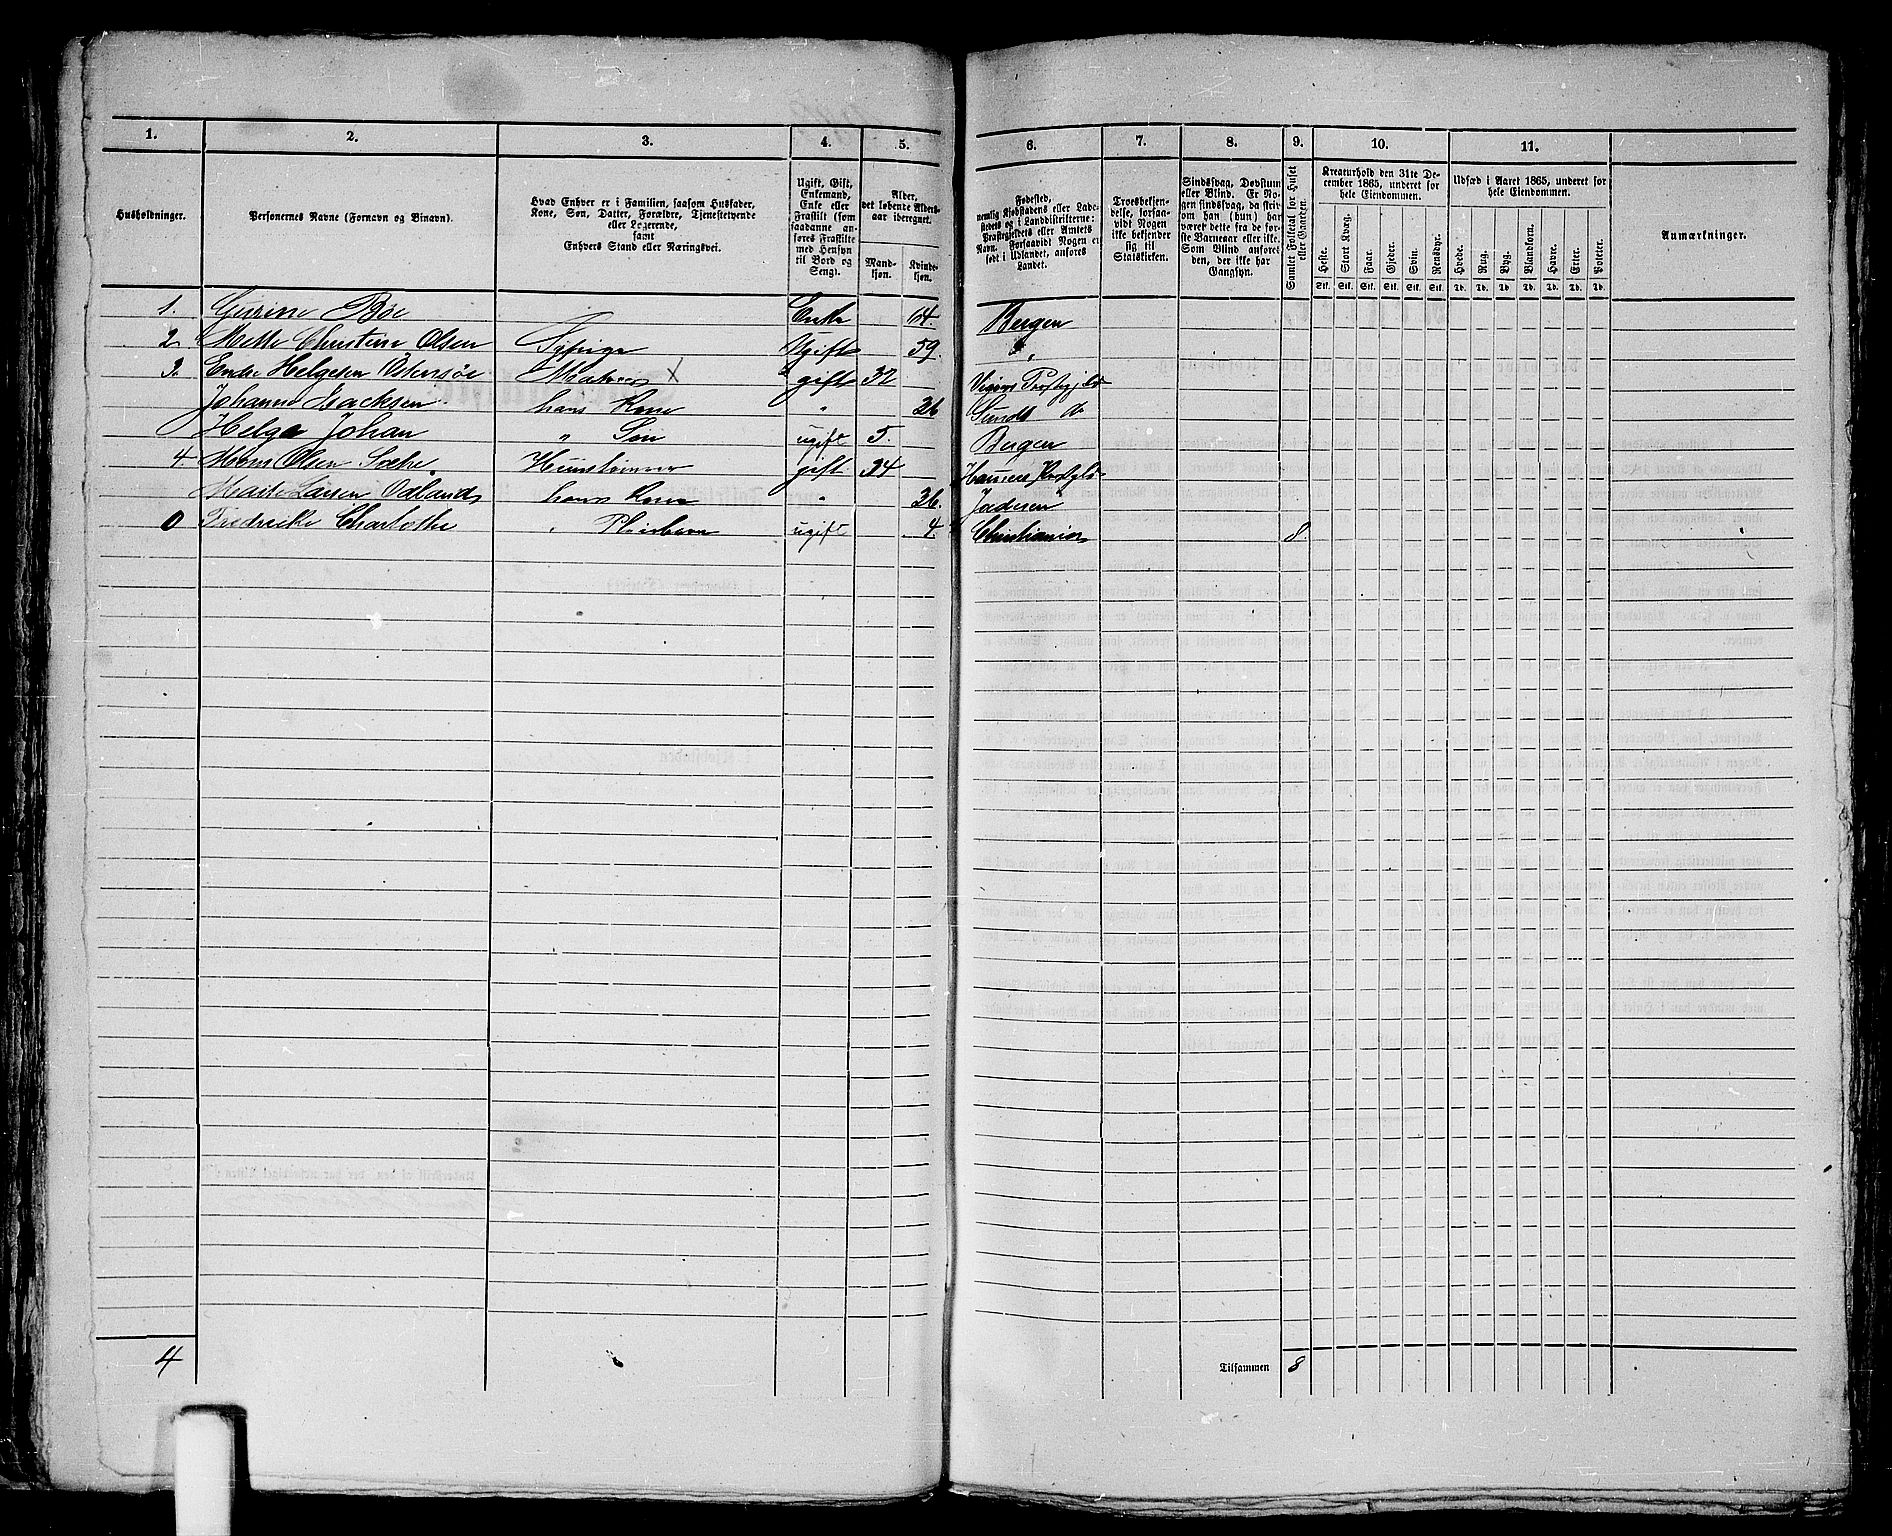 1. 2. 3. 4. 5. 6. 7. 8. 9. 10. 11.
Husholdninger.
Personernes Navne (Fornavn og Binavn).
Hvad Enhver er i Familien, saasom Husfader,
Kone, Søn, Datter, Forældre, Tjenestetyende
eller Logerende,
samt
Enhvers Stand eller Næringsvei.
Ugift, Gift,
Enkemand,
Enke eller
Fraskilt (som
saadanne an-
føres Fraskilte
med Hensyn
til Bord og
Seng).
Alder,
det løbende Alders-
aar iberegnet.
Mand-
kjøn.
Kvinde-
kjøn.
Fødested,
nemlig Kjøbstadens eller Lade-
stedets og i Landdistrikterne:
Præstegjeldets eller Amtets
Navn. Forsaavidt Nogen er
født i Udlandet, anføres
Landet.
Troesbekjen-
delse, forsaa-
vidt Nogen
ikke bekjender
sig til
Statskirken.
Sindssvag, Døvstum
eller Blind. Er No-
gen sindssvag, da skriv
om han (hun) har
været dette fra de før-
ste Barneaar eller ikke.
Som Blind anfores
den, der ikke har
Gangsyn.
Samlet Folketal for Huset
eller Gaarden.
Kreaturhold den 31te De-
cember 1865, underet for
hele Eiendommen.
Heste. Stort Kvæg. Faar. Gjeder. Svin. Rensdyr.
Stk. Stk. Stk. Stk. Stk. Stk.
Udsæd i Aaret 1865, underet for
hele Eiendommen.
Hvede. Rug. Byg. Blandkorn. Havre. Erter. Poteter.
Td. Td. Td. Td. Td. Td. Td.
Anmærkninger.
1. Gurine Boe Enke 64. Bergen
2. Mette Christine Olsen Ugift 59. " "
3. Helgesen X gift 32
Johanne Isachsen hans Kone " 36 Sunds do
Helge Johan " Søn ugift 5. Bergen
4. Mons Olsen gift 34
Larsen Odlands hans Kone " 36.
0 Fredrikke Charlothe " Pleiebarn ugift 4. Christiania 8
4
Tilsammen 8